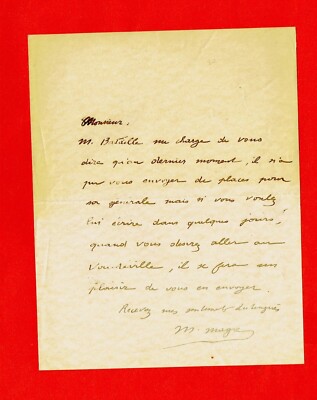 Monsieur,
M. Bataille me charge de vous
dire qu'au dernier moment, il n'a
pu vous envoyer de places pour
sa générale mais si vous voulez
lui écrire dans quelques jours,
quand vous désirez aller au
Vaudeville, il se fera un
plaisir de vous en envoyer.
Recevez mes sentiments distingués
M. Magre